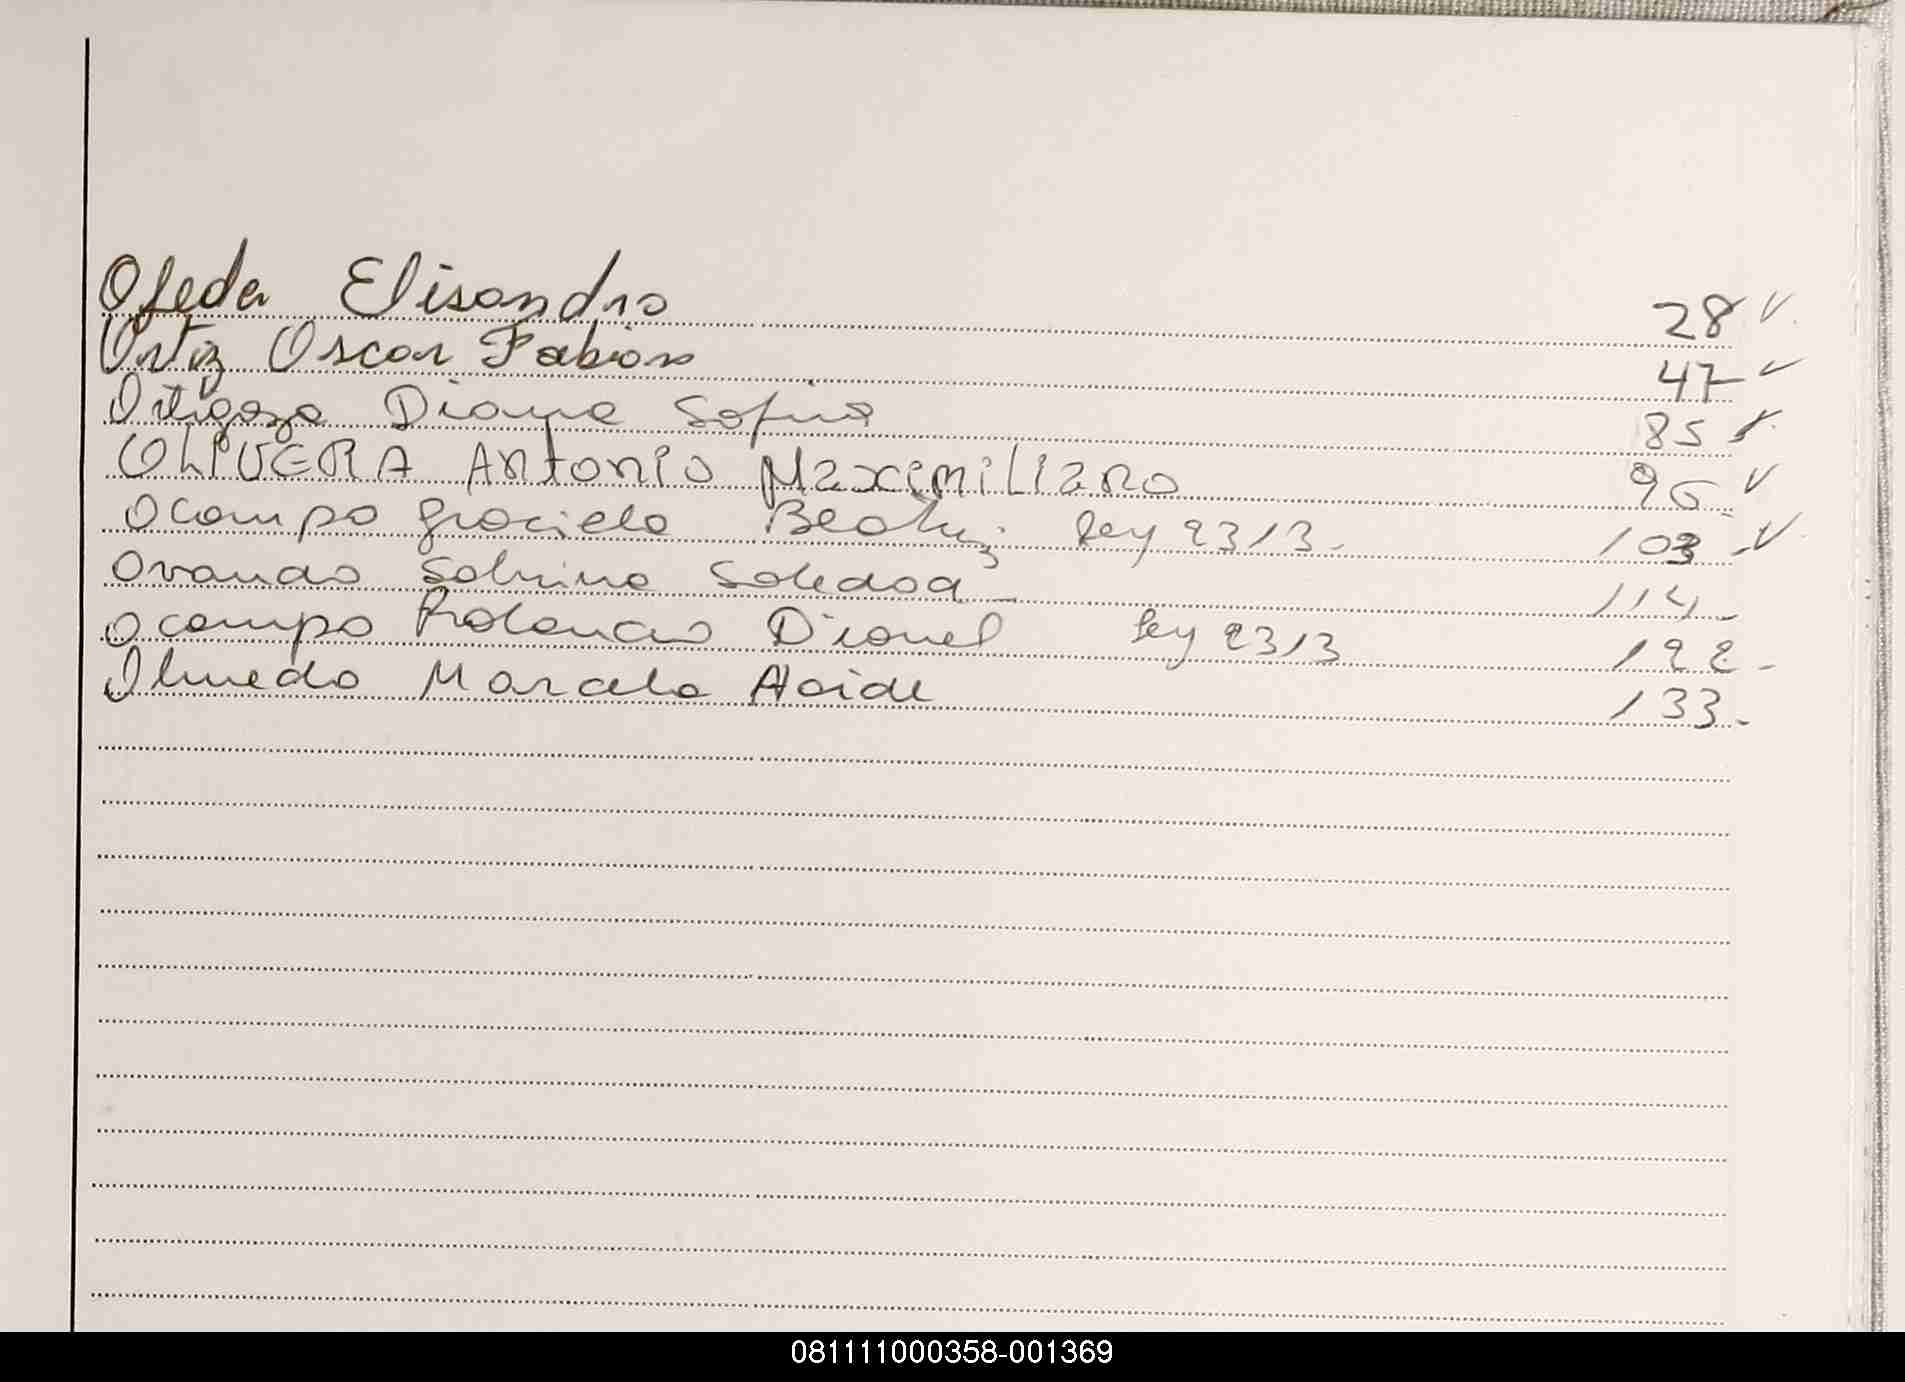 Ojeda Elisandro 28
Ortiz Oscar Fabian 47
Ortigoza Diana Sofia 85
OLIVERA Antonio Maximiliano 95
Ocampo Graciela Beatriz. Ley 2313- 103-
Ovando Sabrina Soledad- 114-
Ocampo Rolando Dionel Ley 2313 122-
Olmedo Marcela Haide 133-
081111000358-001369